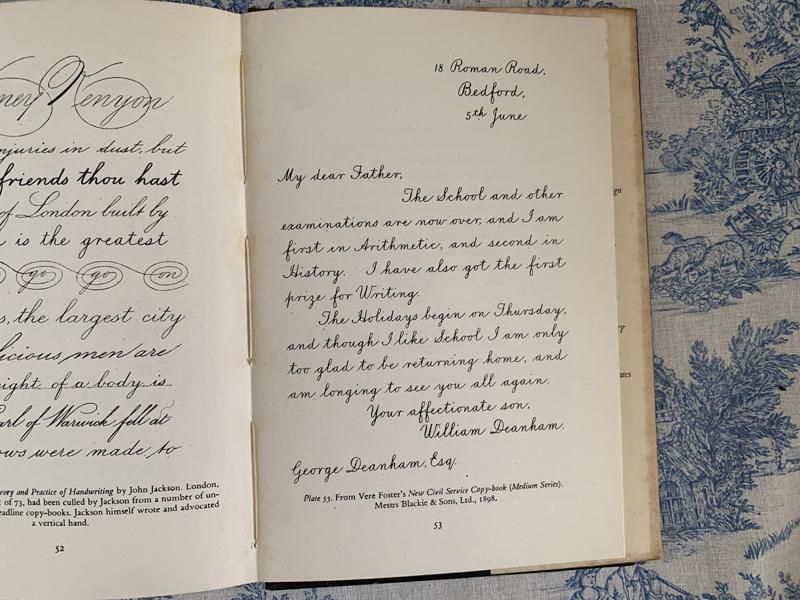 ney Kenyon
njuries in dust, but
friends thou hast
of London built by
is the greatest
go go on
s, the largest city
licious men are
eight of a body is
Earl of Warwick fell at
ows were made to
eory and Practice of Handwriting by John Jackson. London,
t of 73, had been culled by Jackson from a number of un-
eadline copy-books. Jackson himself wrote and advocated
a vertical hand.
52
18 Roman Road,
Bedford,
5th June
My dear Father,
The School and other
examinations are now over, and I am
first in Arithmetic, and second in
History. I have also got the first
prize for Writing.
The Holidays begin on Thursday,
and though I like School I am only
too glad to be returning home, and
am longing to see you all again.
Your affectionate son,
William Deanham.
George Deanham, Esq.
Plate 53. From Vere Foster's New Civil Service Copy-book (Medium Series).
Messrs Blackie & Sons, Ltd., 1898.
53